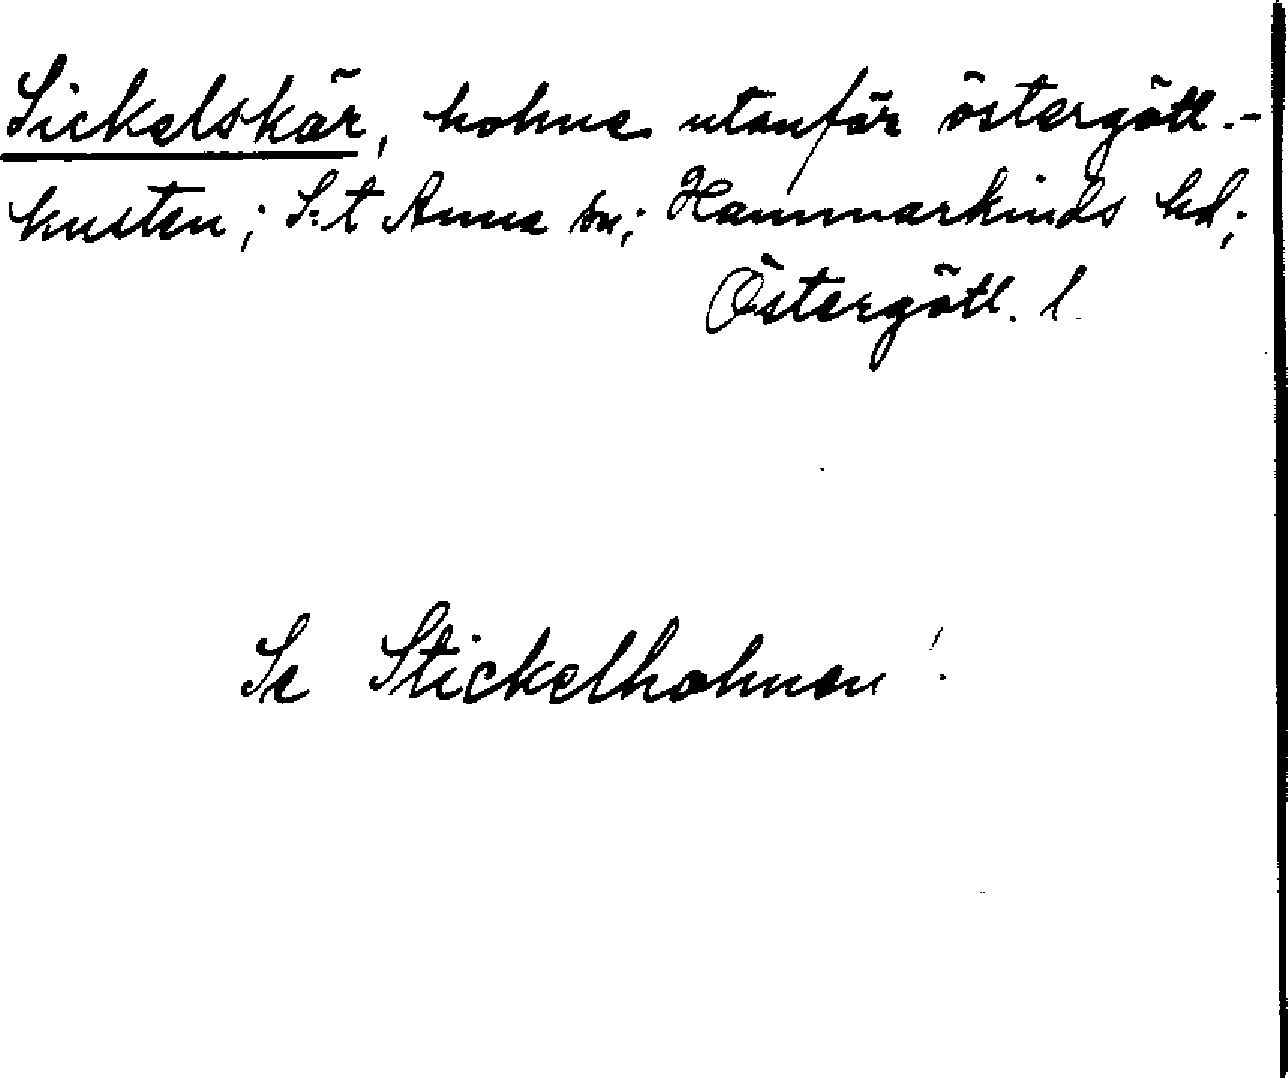 Sickelskär, holme utanför östergötl.-
kusten; S:t Anna sn; Hammarkinds hd;
Östergötl. l.
Se Stickelholmen!